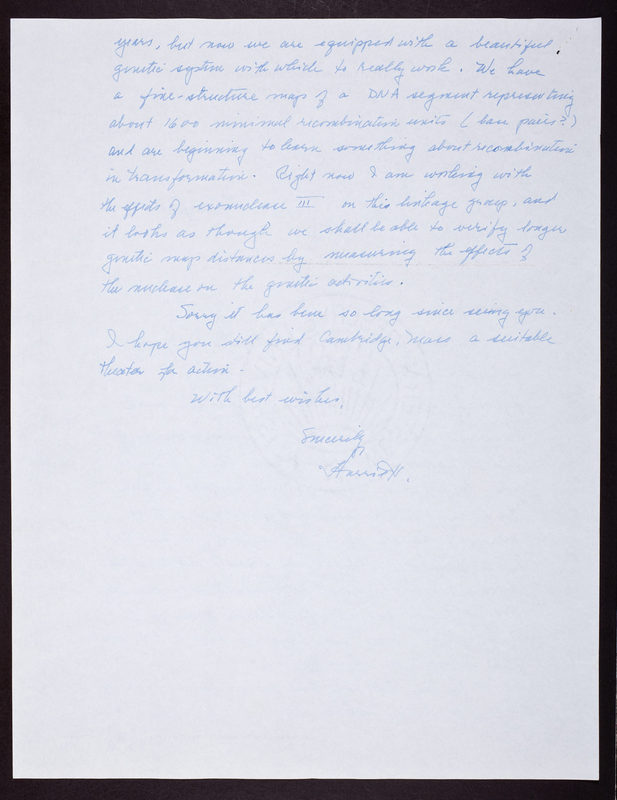 years, but now we are equipped with a beautiful
genetic system with which to really work. We have
a fine-structure map of a DNA segment representing
about 1600 minimal recombination units (base pairs?)
and are beginning to learn something about recombination
in transformation. Right now I am working with
the effects of exonuclease III on this linkage group, and
it looks as though we shall be able to verify longer
genetic map distances by measuring the effects of
the nuclease on the genetic activities.
Sorry it has been so long since seeing you.
I hope you still find Cambridge, Mass a suitable
theater for action.
With best wishes,
Sincerely